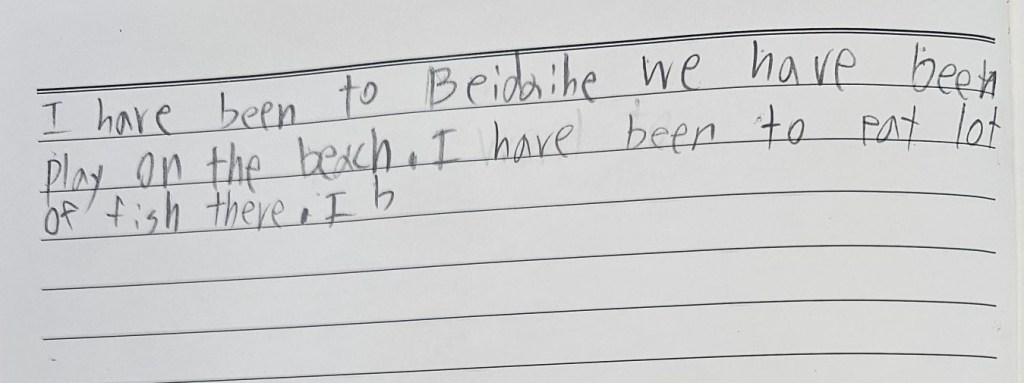 I have been to Beidaihe we have been
play on the beach. I have been to eat lot
of fish there. I b